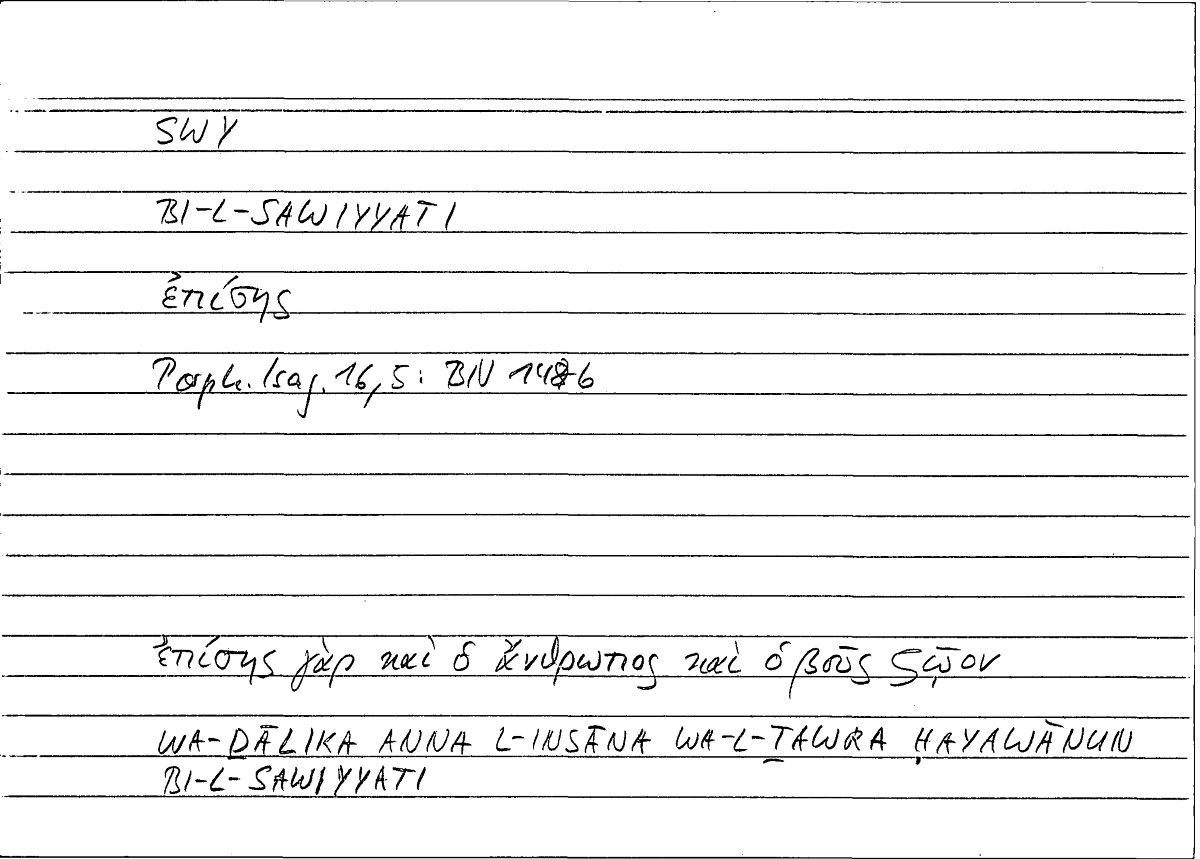 SWY
BI-L-SAWIYYATI
ἐπίσης
Porph. Isag. 16, 5: BN 148b
ἐπίσης γὰρ καὶ ὁ ἄνθρωπος καὶ ὁ βοῦς ζῷον
WA-ḎĀLIKA ANNA L-INSĀNA WA-L-ṮAWRA ḤAYAWĀNUN
BI-L-SAWIYYATI